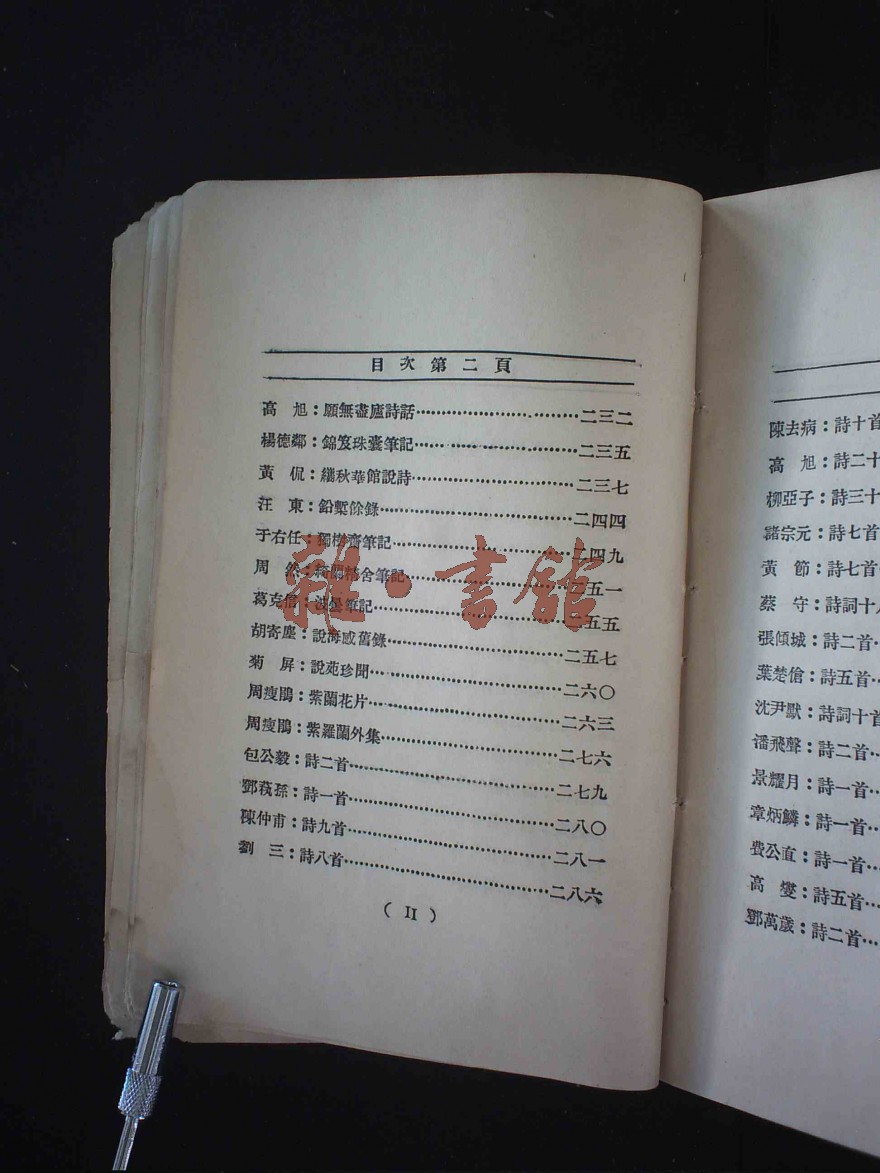 目次第二頁
高　旭：願無盡廬詩話……二三二
楊德鄰：錦笈珠囊筆記……二三五
黃　侃：纗秋華館說詩……二三七
汪　東：鉛槧餘錄……二四四
于右任：獨樹齋筆記……二四九
周　然：綺蘭精舍筆記……二五一
葛克信：波曇筆記……二五五
胡寄塵：說海感舊錄……二五七
菊　屏：說苑珍聞……二六〇
周瘦鵑：紫蘭花片……二六三
周瘦鵑：紫羅蘭外集……二七六
包公毅：詩二首……二七九
鄧莪孫：詩一首……二八〇
陳仲甫：詩九首……二八一
劉　三：詩八首……二八六
（II）
陳去病：詩十首
高　旭：詩二十
柳亞子：詩三十
諸宗元：詩七首
黃　節：詩七首
蔡　守：詩詞十八
張傾城：詩二首
葉楚傖：詩五首
沈尹默：詩詞十首
潘飛聲：詩二首
景耀月：詩一首
章炳麟：詩一首
費公直：詩一首
高　燮：詩五首
鄧萬歲：詩二首
雜·書館